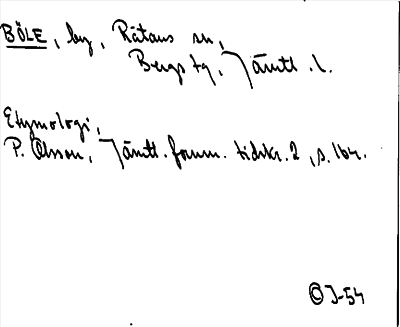 BÖLE, by, Rätans sn,
Bergs tg, Jämtl. l.
Etymologi,
P. Olsson, Jämtl. fornm. tidskr. 2, s. 164.
© J-54